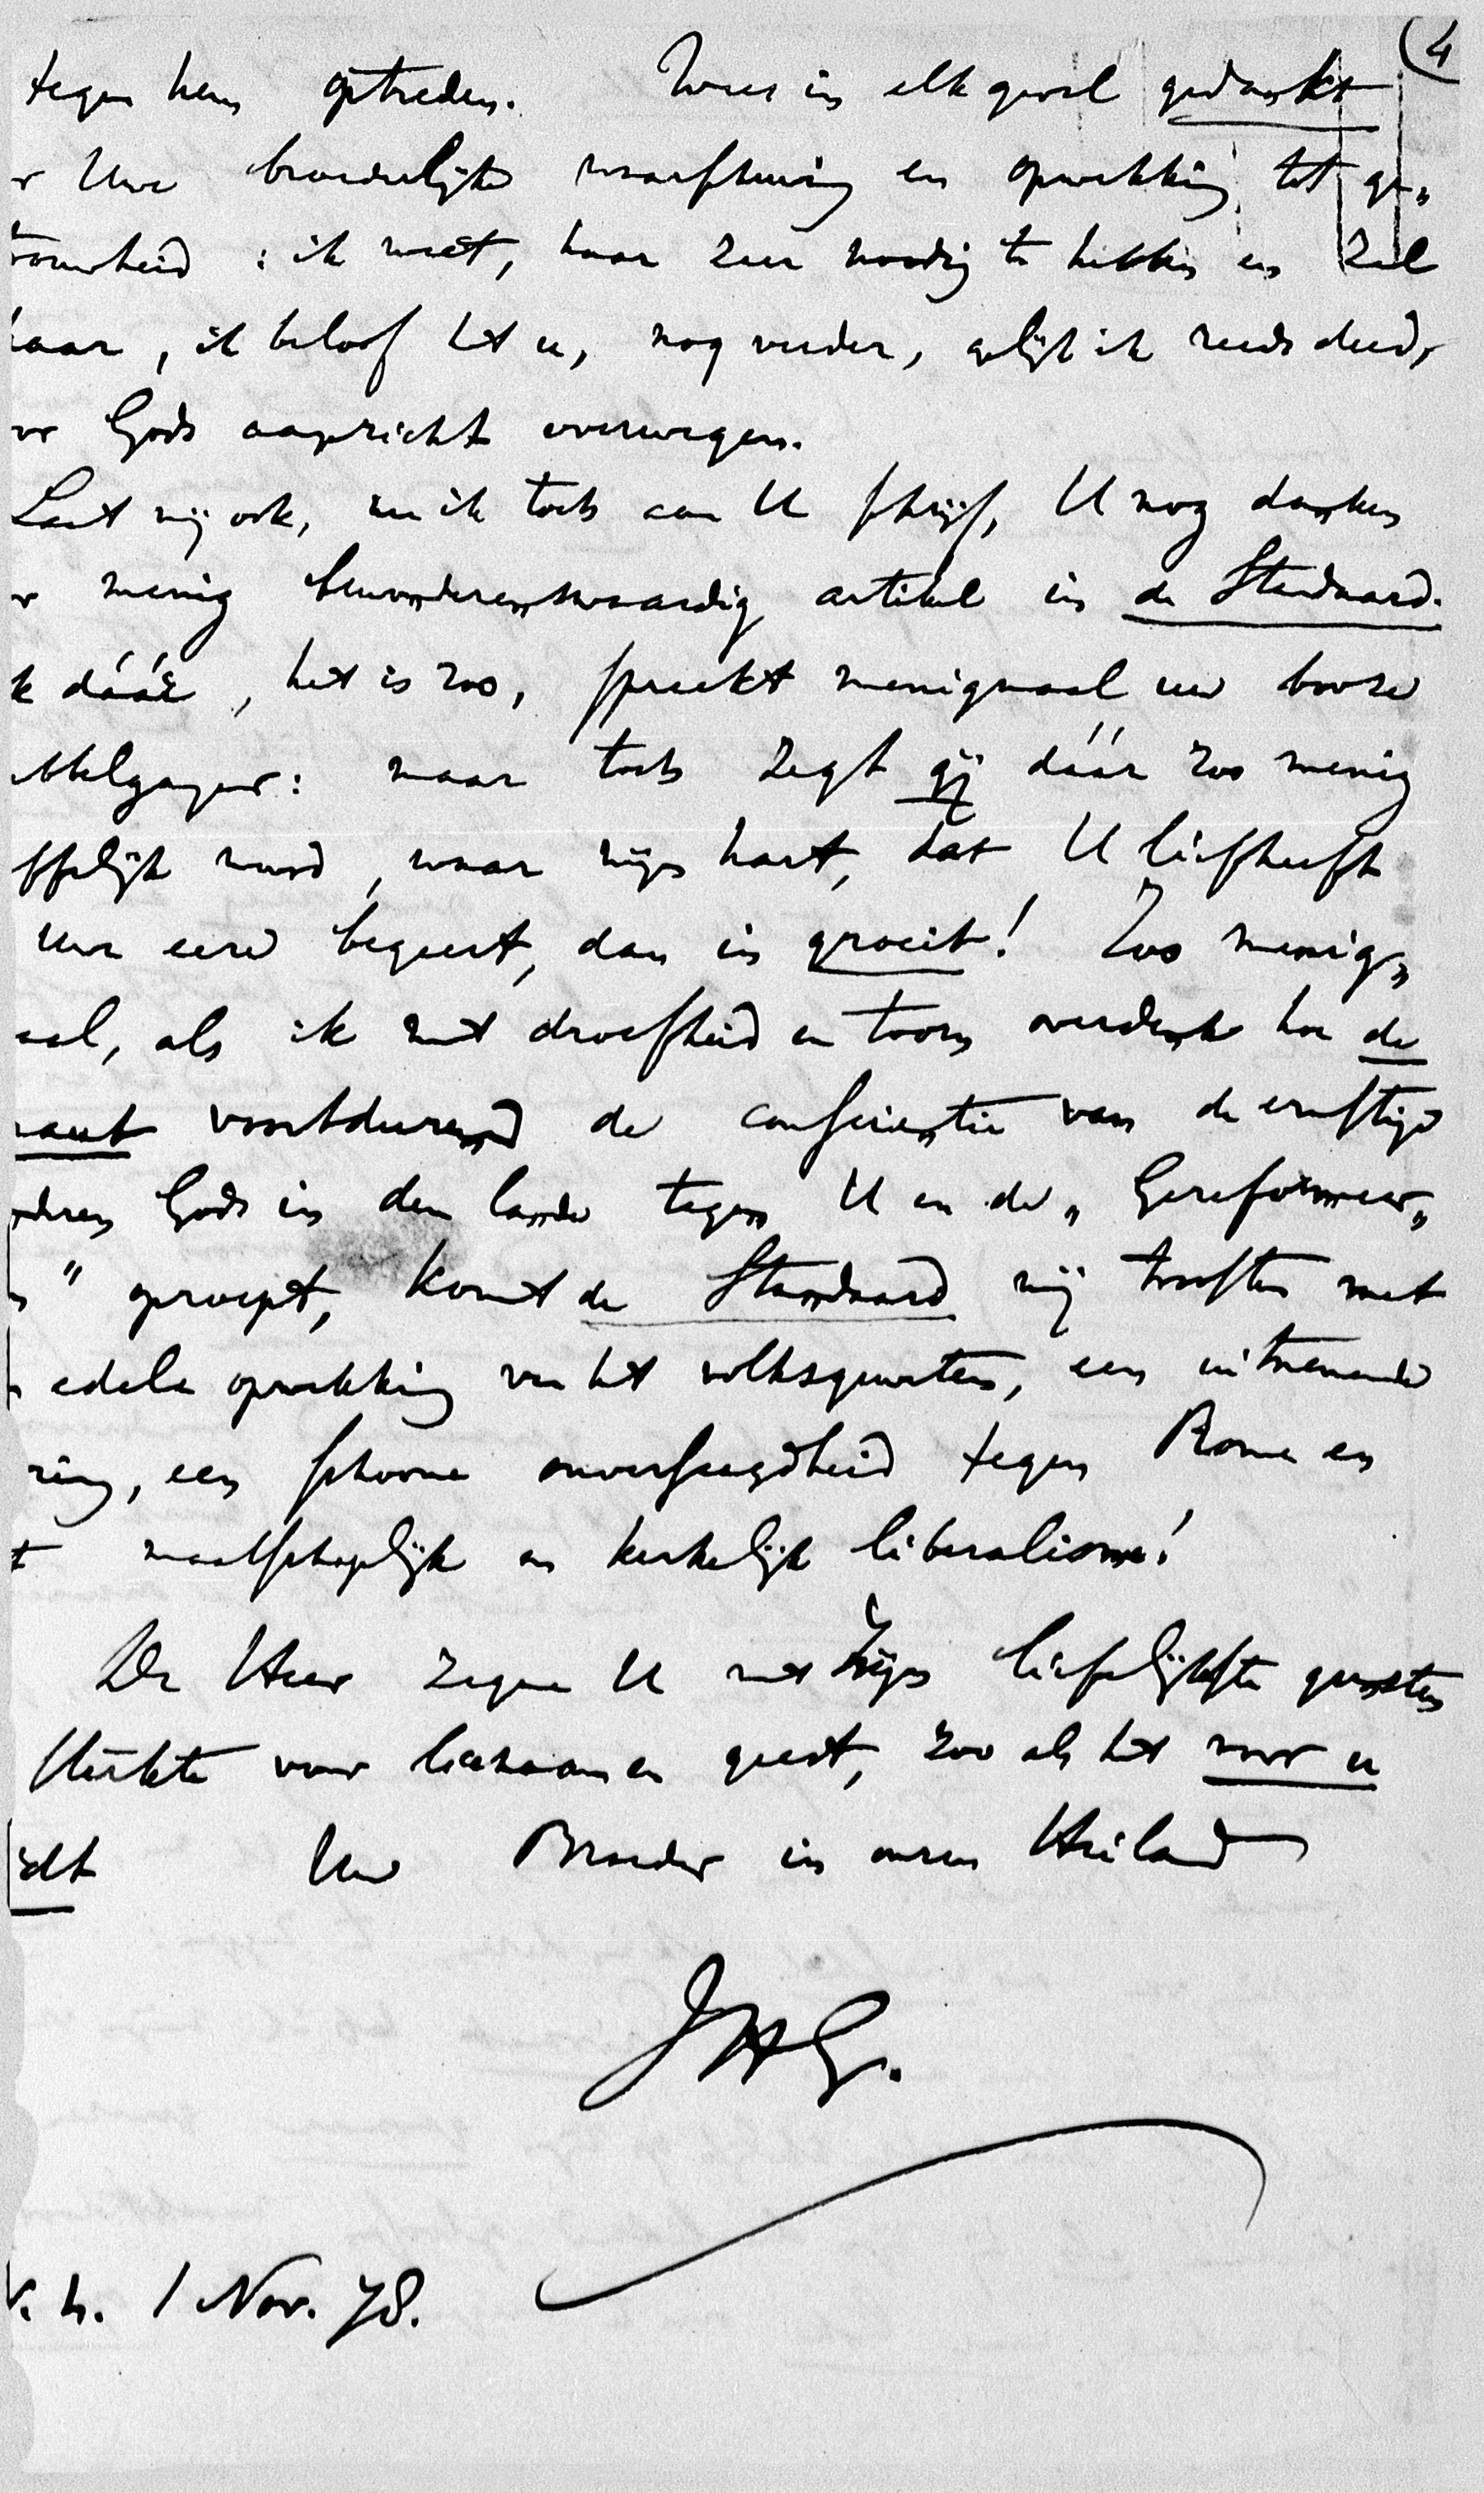 (4
tegen hem optreden. Wees in elk geval gedankt
r Uwe broederlijke waarschuwing en opwekking tot ge„
trouwheid : ik weet, haar zeer noodig te hebben en zal
haar, ik beloof het u, nog verder, gelijk ik reeds deed,
or Gods aangezicht overwegen.
Laat mij ook, nu ik toch aan U schrijf, U nog danken
r menig bewonderenswaardig artikel in de Standaard.
k dáár, het is zoo, spreekt menigmaal uw booze
bbelganger: maar toch zegt gij dáár zoo menig
ffelijk woord, waar mijn hart, dat U liefheeft
Uwe eere begeert, dan in groeit! Zoo menig„
aal, als ik met droefheid en toorn overdenk hoe de
raut voortdurend de conscientie van de ernstige
nderen Gods in den lande tegen U en de „Gereformeer„
n" oproept, komt de Standaard mij troosten met
n edele opwekking van het volksgeweten, een uitnemende
ring, een schoone onversaagdheid tegen Rome en
t maatschaplijk en kerkelijk liberalisme!
De Heer zegene U met Zijn liefelijkste gunsten
sterkte voor lichaam en geest, zoo als het voor u
idt Uw Broeder in onzen Heiland
JHG.
V. h. 1 Nov. 78.